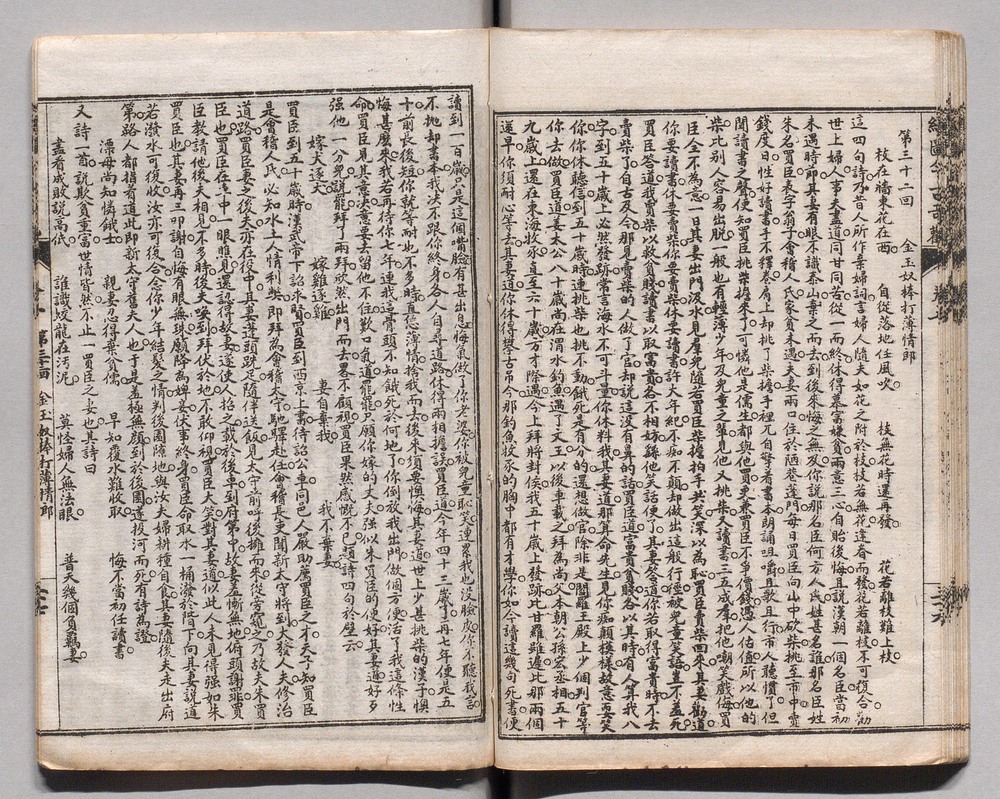 第三十二回 金玉奴棒打薄情郎
枝在牆東花在西 自從落地任風吹 枝無花時還再發 花若離枝難上枝
這四句詩乃昔人所作棄婦詞言婦人隨夫如花之附於枝枝若無花逢春而發花若離枝不可復合勸
世上婦人事夫盡道同甘同苦從一而終休得慕富嫌貧兩意三心自貽後悔且說漢朝一個名臣當初
未遇時節其妻有眼不識泰山棄之而去到後來悔之無及你說那名臣何方人氏姓甚名誰那名臣姓
朱名買臣表字翁子會稽人氏家貧未遇夫妻兩口住於陋巷蓬門每日買臣向山中砍柴挑至市中賣
錢度日性好讀書手不釋卷肩上却挑了柴擔手裡兀自擎着書本朗誦咀嚼且歌且行市人聽慣了但
聞讀書之聲便知買臣挑柴擔來了可憐他是儒生都與他買更兼買臣不爭價錢憑人估值所以他的
柴比別人容易出脫一般也有輕薄少年及兒童之輩見他又挑柴又讀書三五成羣把他嘲笑戲侮買
臣全不為意一日其妻出門汲水見羣兒隨着買臣柴擔拍手共笑深以為恥買臣賣柴回來其妻勸道
你要讀書休要賣柴你要賣柴休要讀書許大年紀不痴不顛却做出這般行徑被兒童笑話豈不羞死
買臣答道我賣柴以救貧賤讀書以取富貴各不相妨由他笑話便了其妻笑道你若取得富貴時不去
賣柴了自古及今那見賣柴的人做了官却說這沒有鼻的話買臣道富貴貧賤各以其時有人算我八
字到五十歲上必然發跡常言海水不可斗量你休料我其妻道那算命先生見你痴顛模樣故意耍笑
你你休聽信到五十歲時連挑柴也挑不動餓死是有分的還想做官除非是閻羅王殿上少個判官等
你去做買臣道姜太公八十歲尚在渭水釣魚遇了文王以後車載之拜為尚父本朝公孫宏丞相五十
九歲上還在東海牧豕直至六十歲方才際遇今上拜將封侯我五十歲上發跡比甘羅雖遲比那兩個
還早你須耐心等去其妻道你休得攀今吊古那釣魚牧豕的胸中都有才學你如今讀這幾句死書便
讀到一百歲只是這個嘴臉有甚出息悔氣做了你老婆你被兒童恥笑連累我也沒臉皮你不聽我言
不拋却書本我決不跟你終身各人自尋道路休得兩相擔誤買臣道我今年四十三歲了再七年便是五
十前長後短你就等耐也不多時直恁薄情捨我而去後來須要懊悔其妻道世上少甚挑柴的漢子懊
悔甚麼來我若再守你七年連我骨頭不知餓死於何地了你倒放我出門做個方便活了我這條性
命買臣見其妻決意要去留他不住歎口氣道罷罷只願你嫁的丈夫強似朱買臣的便好其妻道好歹
強他一分兒說罷拜了兩拜欣然出門而去畧不顧視買臣果然感慨不已題詩四句於壁云
嫁犬逐犬 嫁雞逐雞 妻自棄我 我不棄妻
買臣到五十歲時漢武帝下詔求賢買臣到西京上書待詔公車同邑人嚴助薦買臣之才天子知買臣
是會稽人氏必知水土人情利弊即拜為會稽太守馳驛赴任會稽長吏聞新太守將到大發人夫修治
道路買臣妻之後夫亦在役中其妻蓬頭跣足隨伴送飯見太守前呼後擁而來從旁窺之乃故夫朱買
臣也買臣在車中一眼瞧見還認得故妻遂使人招之載於後車到府第中故妻羞慚無地俯頭謝罪買
臣教請他後夫相見不多時後夫喚到拜伏於地不敢仰視買臣大笑對其妻道似此人未見得強如朱
買臣也其妻再三叩謝自悔有眼無珠願降為婢妾伏事終身買臣命取水一桶潑於階下向其妻說道
若潑水可復收汝亦可復合念你少年結髮之情判後園隙地與汝夫婦耕種自食其妻隨後夫走出府
第路人都指着道此即新太守舊夫人也於是羞極無顏到於後園遂投河而死有詩為證
漂母尚知憐餓士 親妻忍得棄貧儒 早知覆水難收取 悔不當初任讀書
又詩一首說欺貧重富世情皆然不止一買臣之妻也其詩曰
盡看成敗說高低 誰識蛟龍在汚泥 莫怪婦人無法眼 普天幾個負羈妻
第三十二回 金玉奴棒打薄情郎